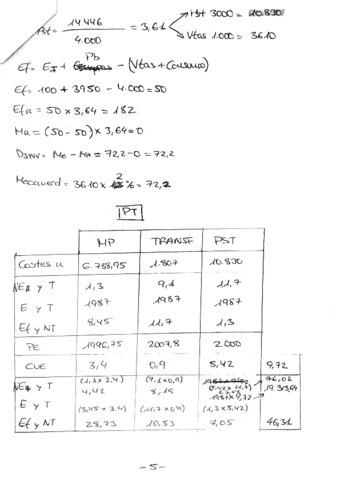 = 14446 / 4.000 = 3,61
3000 = 10.830
Vtas 1.000 = 3610
Ef = EI + Pb - (Vtas + Consumo)
Ef = 100 + 3950 - 4.000 = 50
EfR = 50 x 3,64 = 182
MR = (50 - 50) x 3,64 = 0
DInv = Me - MR = 72,2 - 0 = 72,2
= 3610 x 2 % = 72,2
PT
MP TRANSF PST
Costes u 6.788,95 1.807 10.830
y T 1,3 9,1 11,7
E y T 1987 1987 1987
Ef y NT 8,45 11,7 1,3
PE 1996,75 2007,8 2000
CUE 3,4 0,9 5,42 9,72
y T (1,3 x 3.4) (9,1 x 0,9) (5.42 x 11,7) 76,02
4,42 8,19
E y T 1987 x 9,72 19.313,64
Ef y NT (8,45 x 3.4) (11,7 x 0,9) (1,3 x 5,42)
28,73 10,53 7,05 46,31
-5-